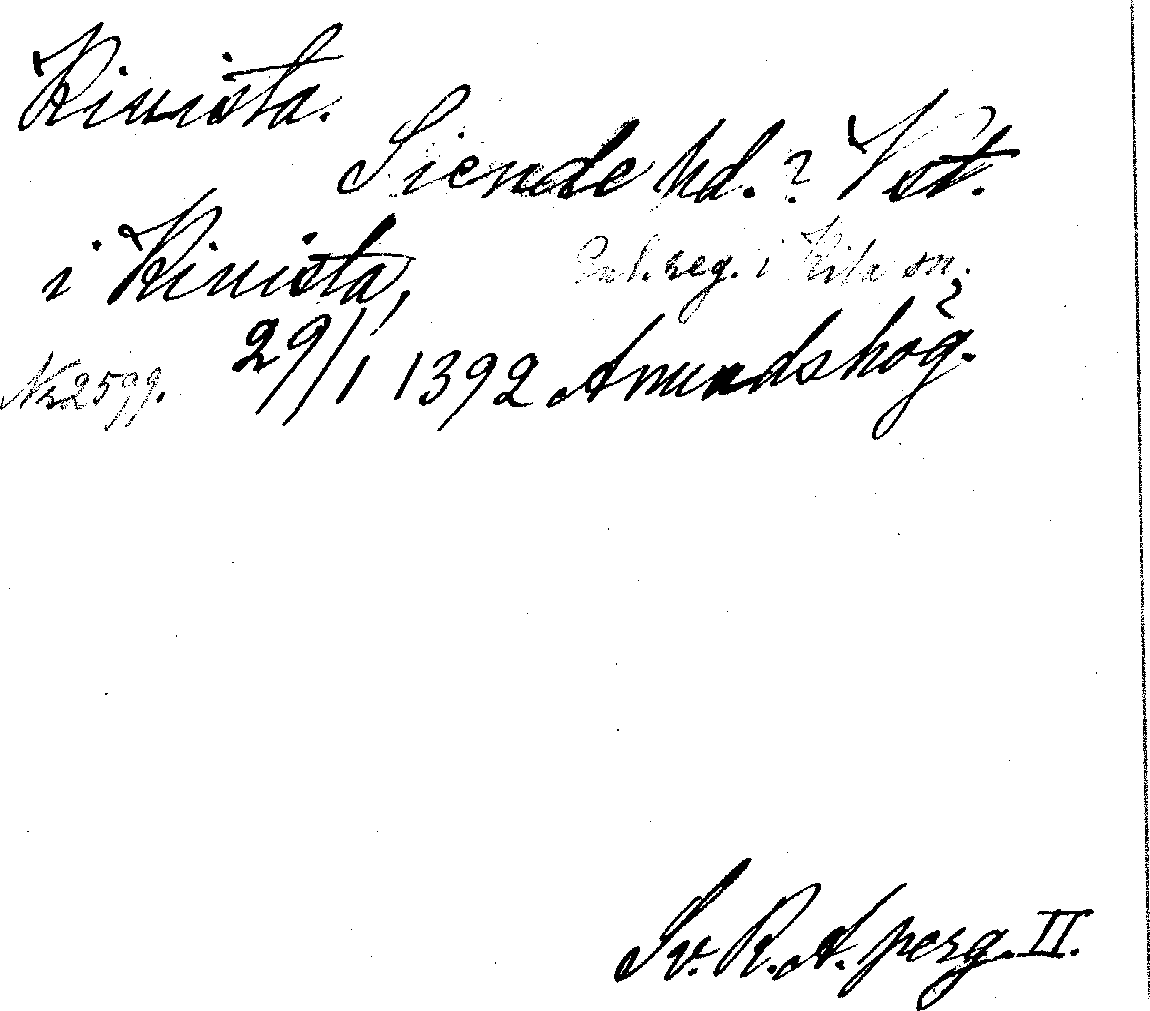 Kinista.
Siende hd.? Vst.
i Kinista,
Enl. reg. i Kila sn.?
Nr 2599.
29/1 1392 Amundshög.
Sv. R. A. perg. II.